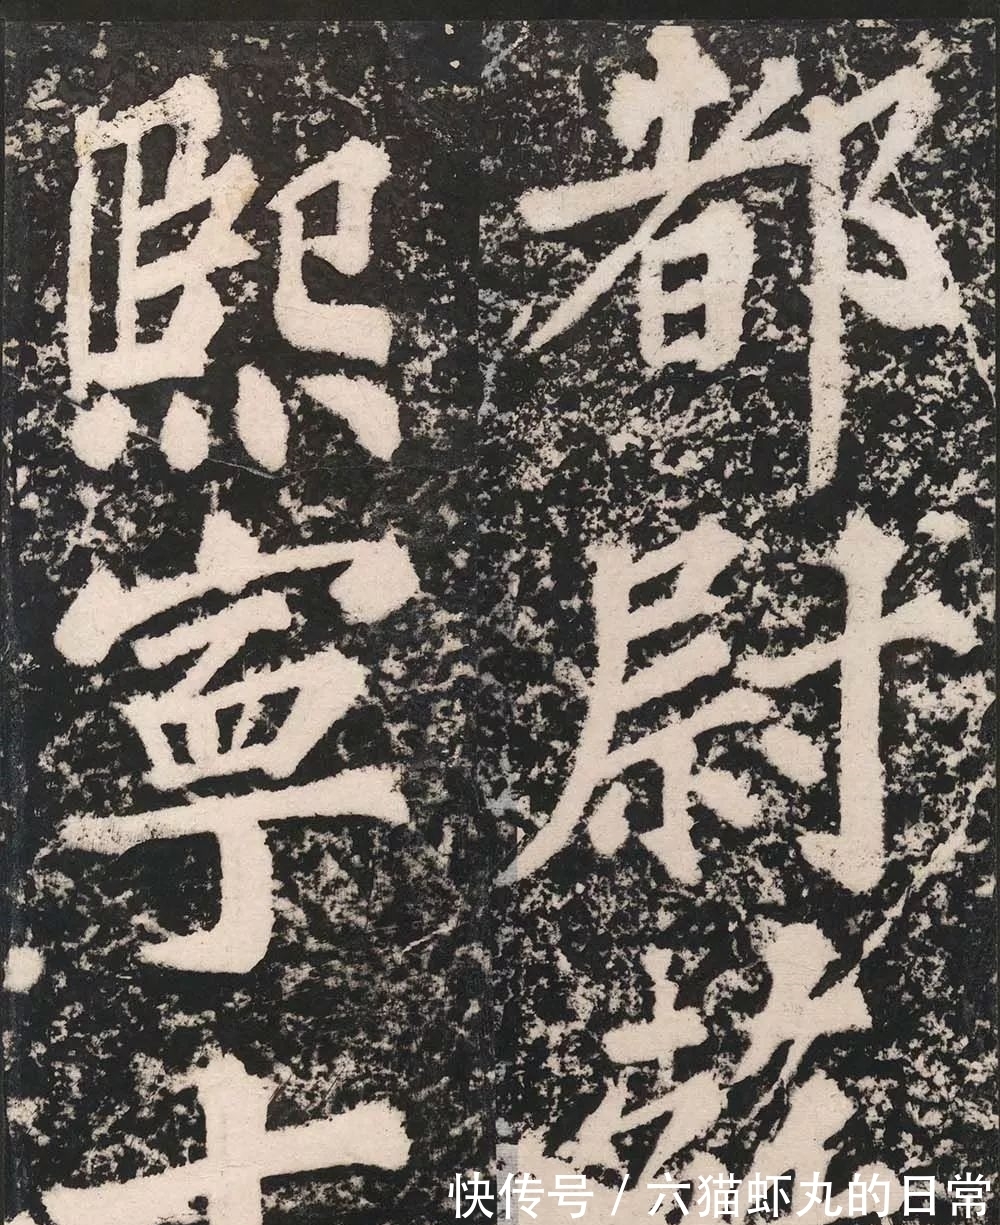 都尉
熙寧十
快传号 / 六猫虾丸的日常